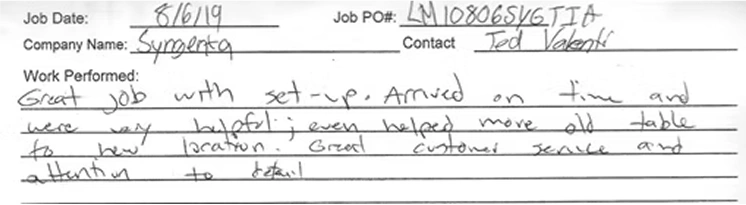 Job Date: 8/6/19 Job PO#: LM10806SYGTIA
Company Name: Syngenta Contact Ted Valenti
Work Performed:
Great job with set-up. Arrived on time and
were very helpful; even helped move old table
to new location. Great customer service and
attention to detail